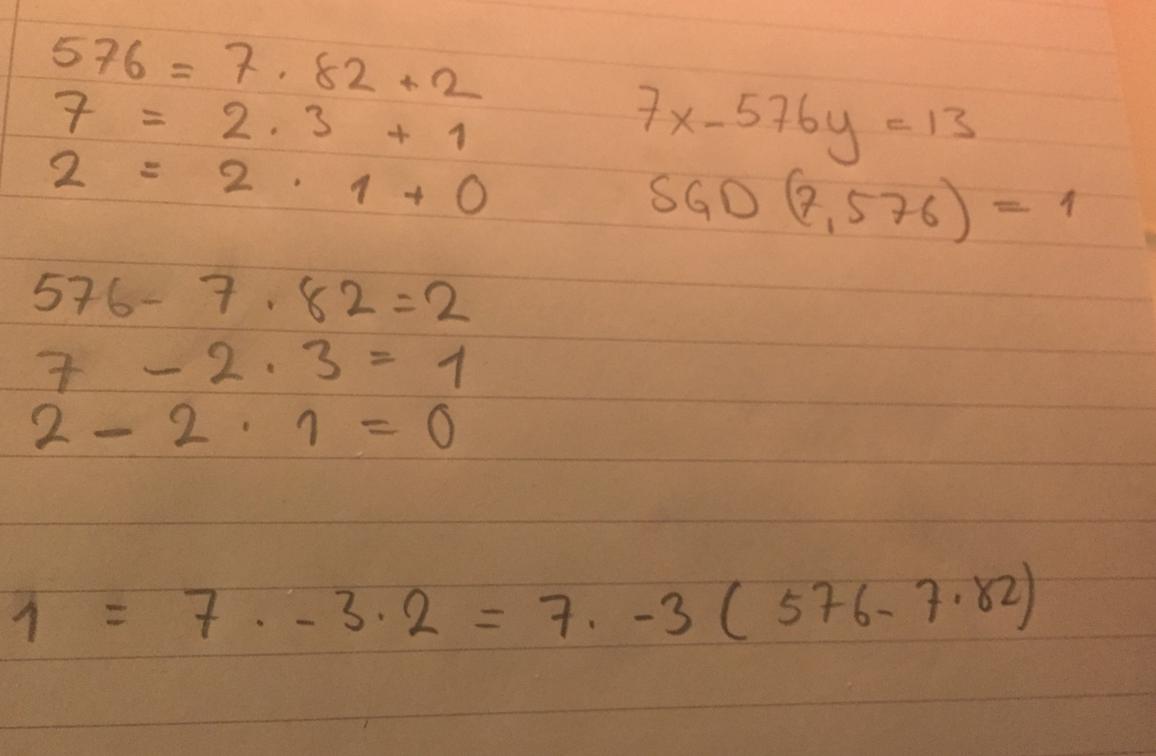 576 = 7 · 82 + 2
7 = 2 · 3 + 1
2 = 2 · 1 + 0
7x - 576y = 13
SGD (7,576) = 1
576 - 7 · 82 = 2
7 - 2 · 3 = 1
2 - 2 · 1 = 0
1 = 7 · -3 · 2 = 7 · -3 ( 576 - 7 · 82)